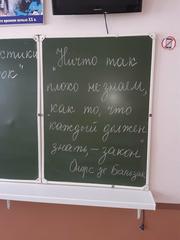 в начале XX в.
стики
ок"
"Ничто так
плохо не знаем,
как то, что
каждый должен
знать, – закон"
Оноре де Бальзак